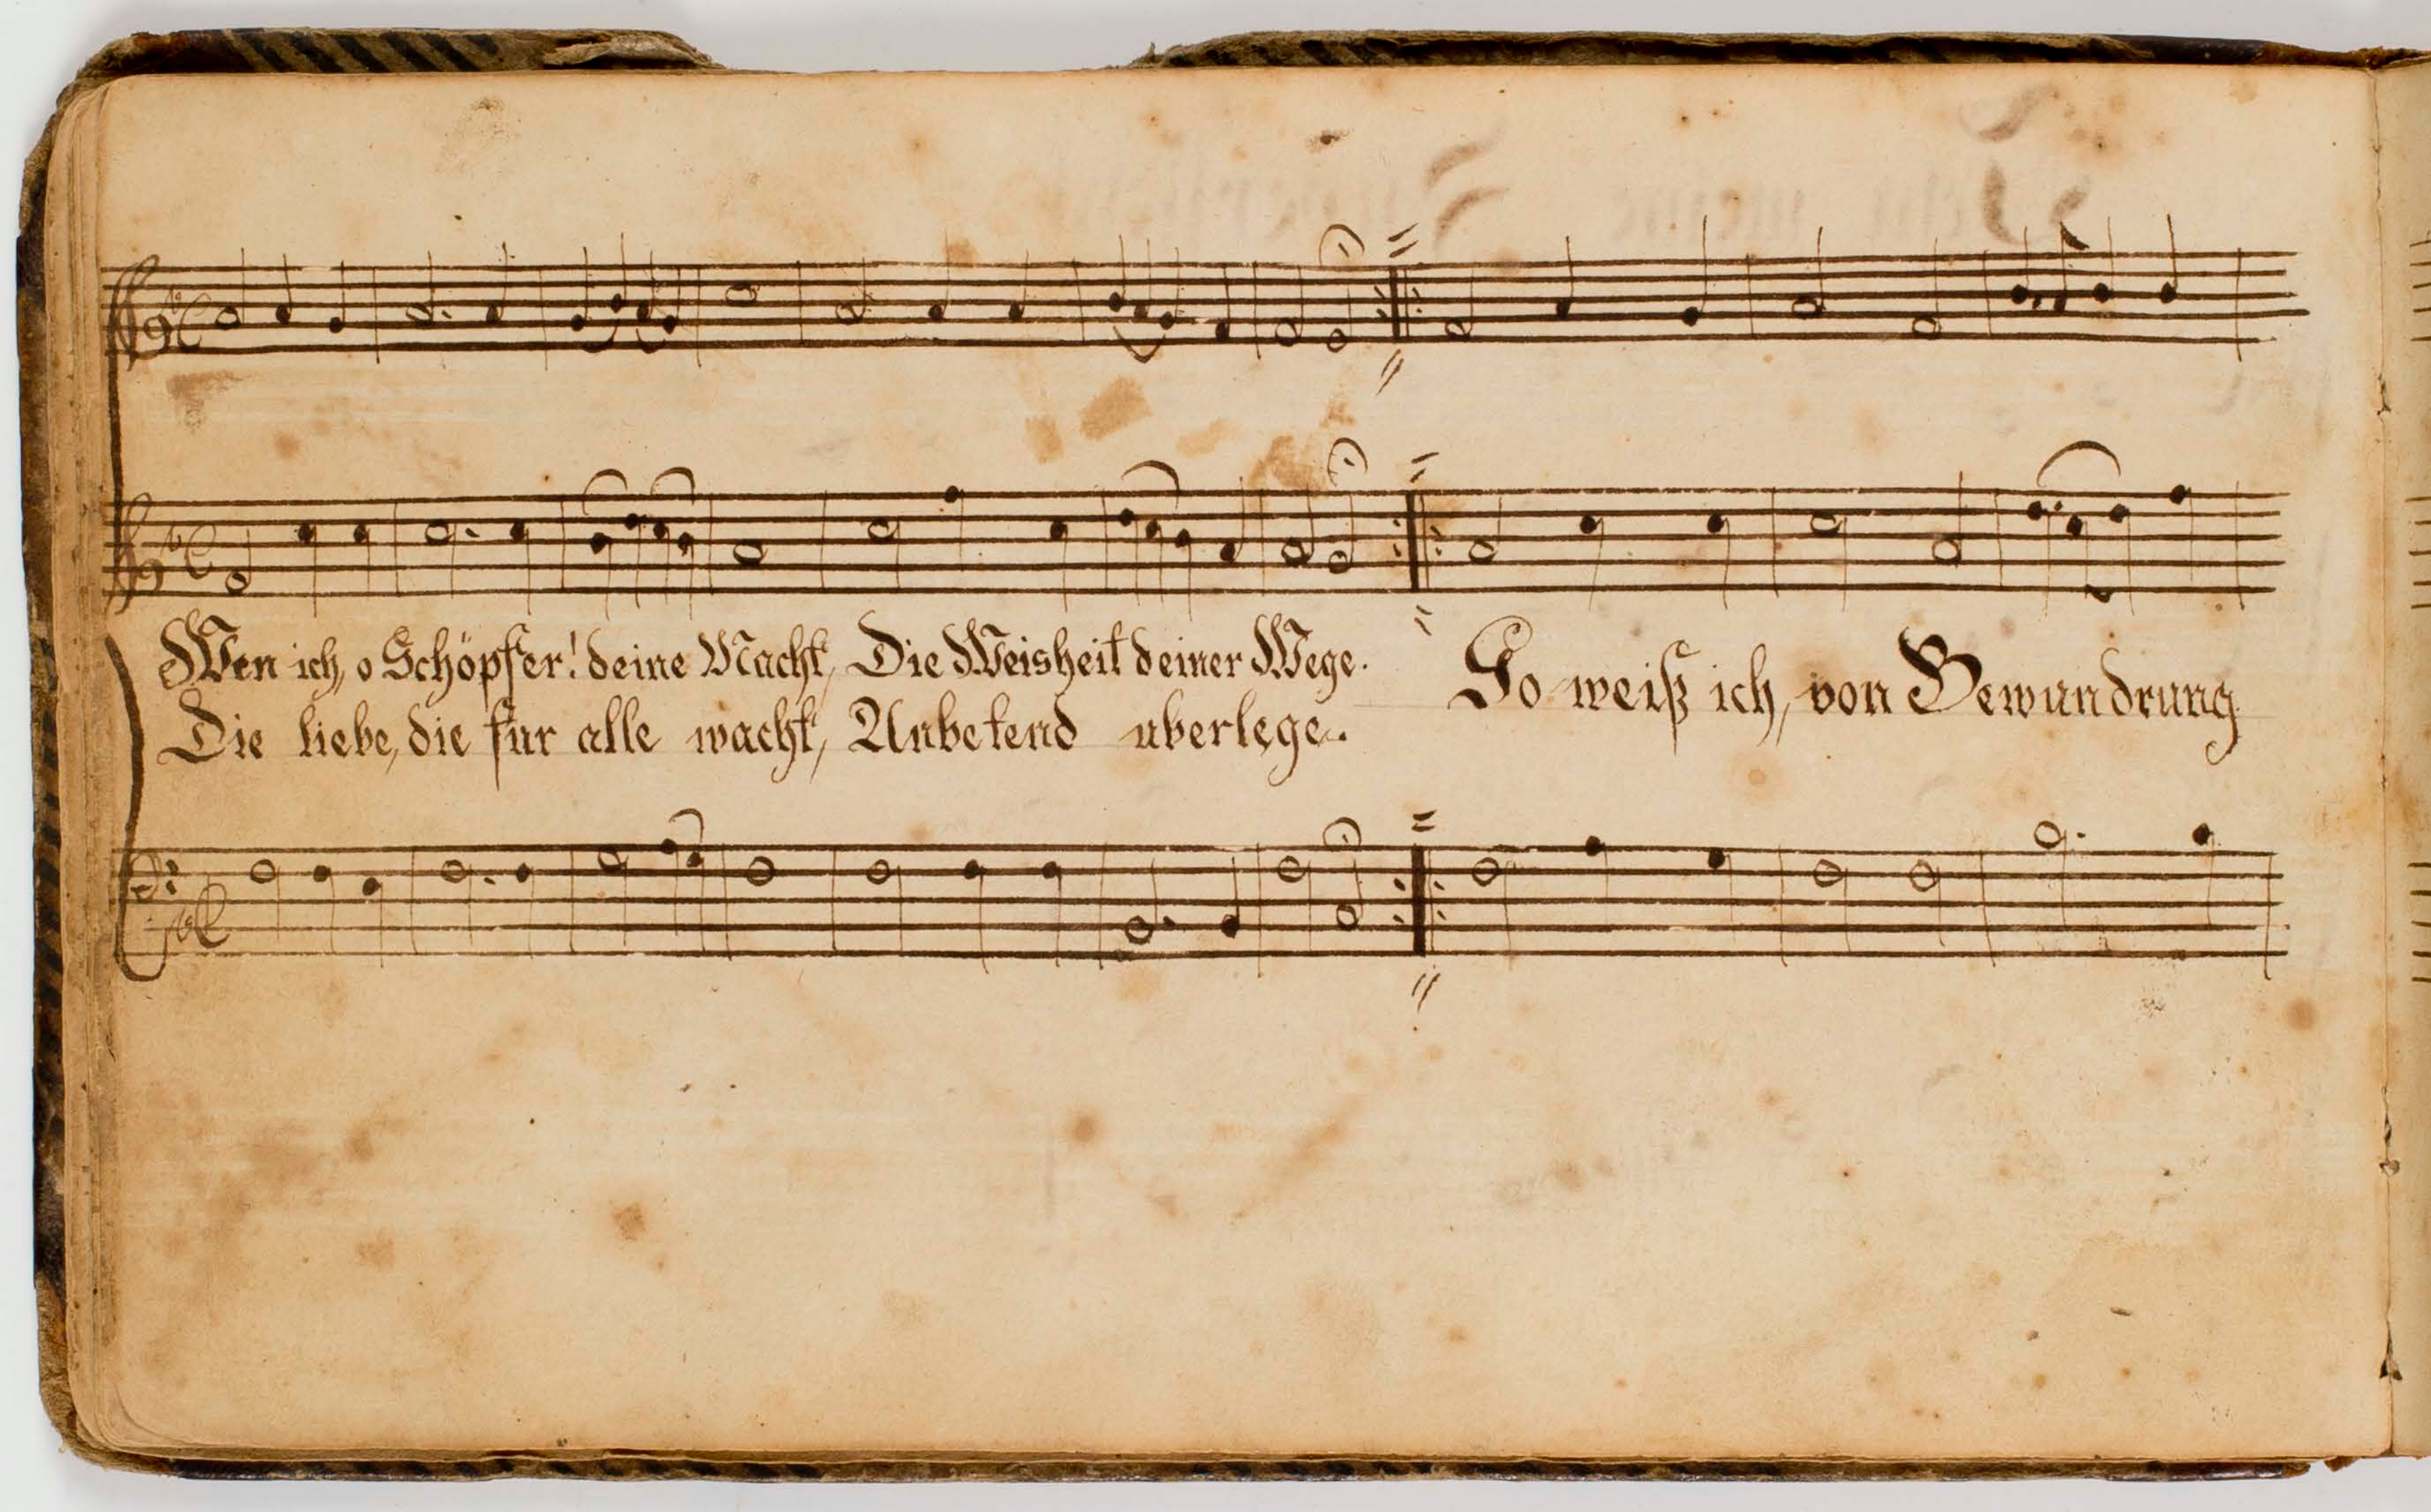 Wen ich, o Schöpfer! deine Macht, Die Weisheit deiner Wege.
Die liebe, die fur alle wacht, Anbetend uberlege.
So weiß ich, von Bewundrung